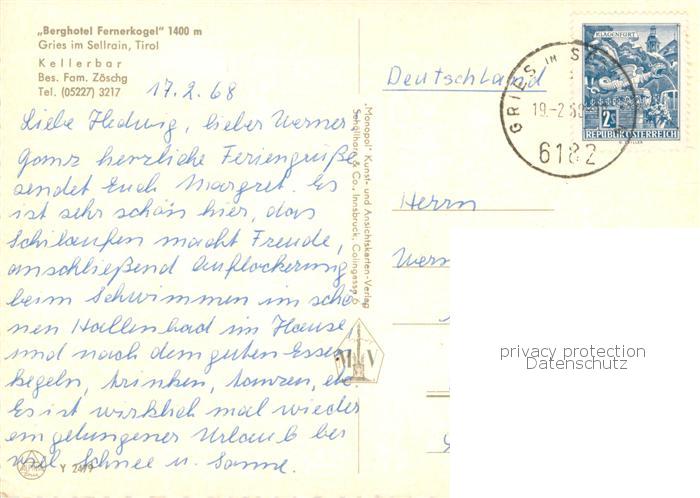 „Berghotel Fernerkogel" 1400 m
Gries im Sellrain, Tirol
Kellerbar
Bes. Fam. Zöschg
Tel. (05227) 3217
17.2.68
Liebe Hedwig, lieber Werner,
Ganz herzliche Feriengrüße
sendet Euch Margret. Es
ist sehr schön hier, das
Schilaufen macht Freude,
anschließend Auflockerung
beim Schwimmen im schö-
nen Hallenbad im Hause,
und nach dem guten Essen
kegeln, trinken, tanzen, etc.
Es ist wirklich mal wieder
ein gelungener Urlaub bei
viel Schnee u. Sonne.
Y 2479
„Monopol" Kunst- und Ansichtskarten-Verlag
Schöllhorn & Co., Innsbruck, Colingasse 6
M V
Deutschland
GRIES IM S
19.-2.68
6182
KLAGENFURT
2S
REPUBLIK ÖSTERREICH
Herrn
Wern
privacy protection
Datenschutz